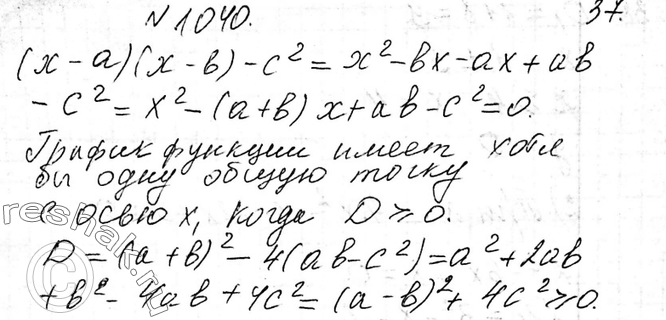 № 1040.
37.
(x - a)(x - в) - c² = x² - вx - ax + aв
- c² = x² - (a + в) x + aв - c² = 0.
График функции имеет хотя
бы одну общую точку
с осью x, когда D ≥ 0.
D = (a + в)² - 4(aв - c²) = a² + 2aв
+ в² - 4aв + 4c² = (a - в)² + 4c² ≥ 0.
reshak.ru